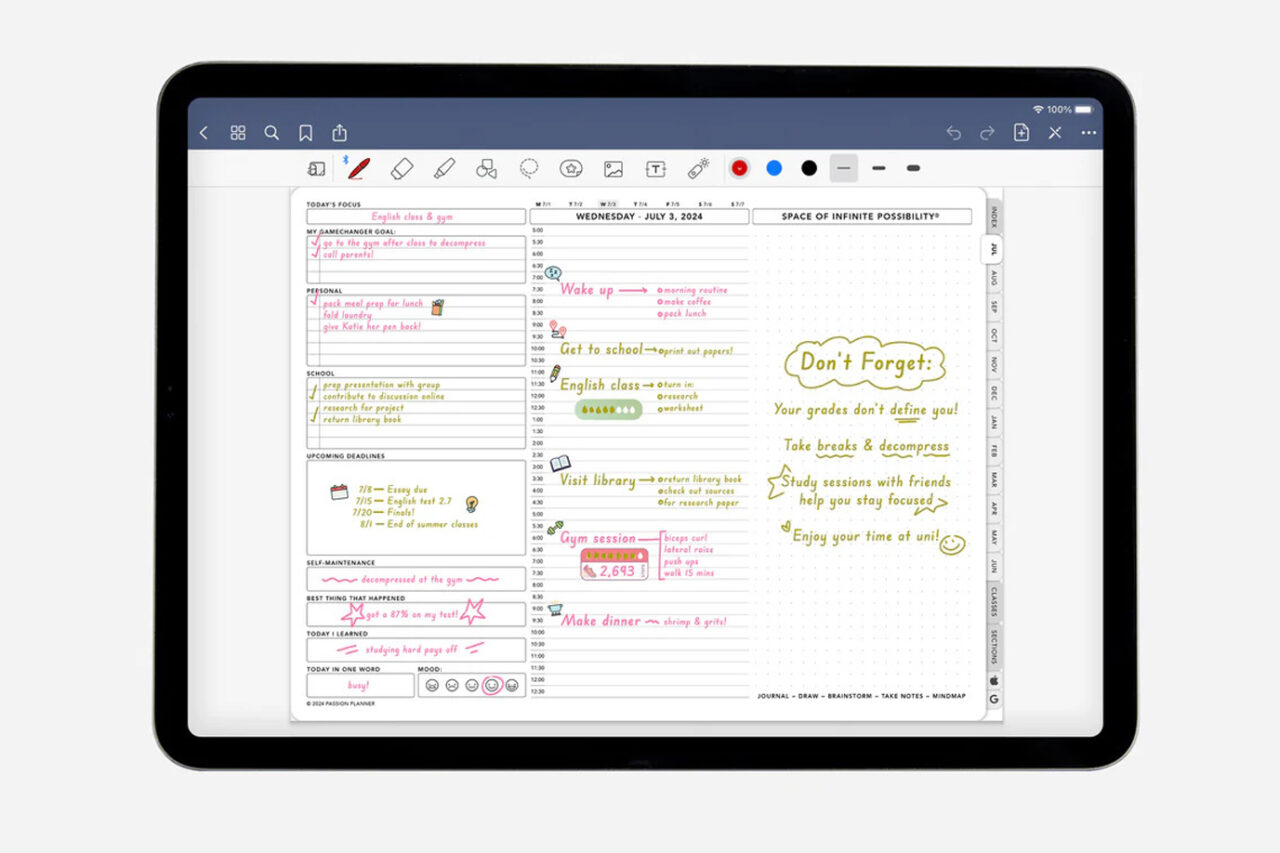 100%
TODAY'S FOCUS
English class & gym
MY GAMECHANGER GOAL:
go to the gym after class to decompress
call parents!
PERSONAL
pack meal prep for lunch
fold laundry
give Katie her pen back!
SCHOOL
prep presentation with group
contribute to discussion online
research for project
return library book
UPCOMING DEADLINES
7/8 — Essay due
7/15 — English test 2.7
7/20 — Finals!
8/1 — End of summer classes
SELF-MAINTENANCE
decompressed at the gym
BEST THING THAT HAPPENED
got a 87% on my test!
TODAY I LEARNED
studying hard pays off
TODAY IN ONE WORD
busy!
MOOD:
© 2024 PASSION PLANNER
M 7/1 T 7/2 W 7/3 T 7/4 F 7/5 S 7/6 S 7/7
WEDNESDAY - JULY 3, 2024
5:00
5:30
6:00
6:30
7:00
7:30 Wake up morning routine
8:00 make coffee
8:30 pack lunch
9:00
9:30
10:00 Get to school print out papers!
10:30
11:00
11:30 English class turn in:
12:00 research
12:30 worksheet
1:00
1:30
2:00
2:30
3:00
3:30 Visit library return library book
4:00 check out sources
4:30 for research paper
5:00
5:30
6:00 Gym session biceps curl
6:30 lateral raise
7:00 push ups
7:30 2,693 walk 15 mins
8:00
8:30
9:00
9:30 Make dinner shrimp & grits!
10:00
10:30
11:00
11:30
12:00
12:30
SPACE OF INFINITE POSSIBILITY®
Don't Forget:
Your grades don't define you!
Take breaks & decompress
Study sessions with friends
help you stay focused
Enjoy your time at uni!
JOURNAL – DRAW – BRAINSTORM – TAKE NOTES – MINDMAP
INDEX
JUL
AUG
SEP
OCT
NOV
DEC
JAN
FEB
MAR
APR
MAY
JUN
CLASSES
SECTIONS
G